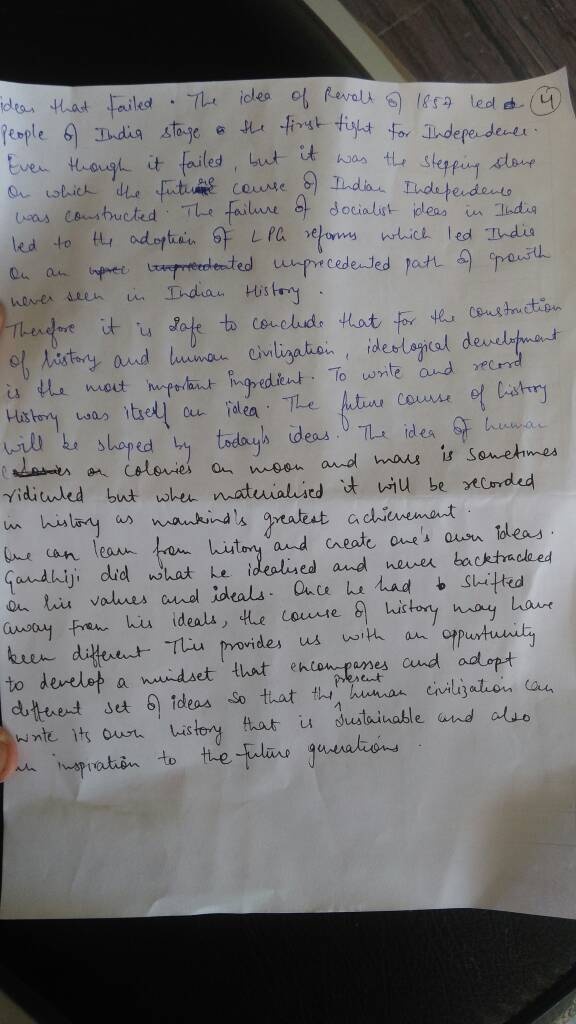 ideas that failed. The idea of Revolt of 1857 led 4
People of India stage the first fight for Independence.
Even though it failed, but it was the stepping stone
on which the future course of Indian Independence
was constructed. The failure of Socialist ideas in India
led to the adoption of LPG reforms which led India
on an unprecedented path of growth
never seen in Indian History.
Therefore it is safe to conclude that for the construction
of history and human civilization, ideological development
is the most important ingredient. To write and record
History was itself an idea. The future course of history
will be shaped by today's ideas. The idea of human
or colonies on moon and mars is sometimes
ridiculed but when materialised it will be recorded
in history as mankind's greatest achievement.
One can learn from history and create one's own ideas.
Gandhiji did what he idealised and never backtracked
on his values and ideals. Once he had shifted
away from his ideals, the course of history may have
been different This provides us with an oppurtunity
to develop a mindset that encompasses and adopt
different set of ideas so that the present human civilization can
write its own history that is sustainable and also
an inspiration to the future generations.